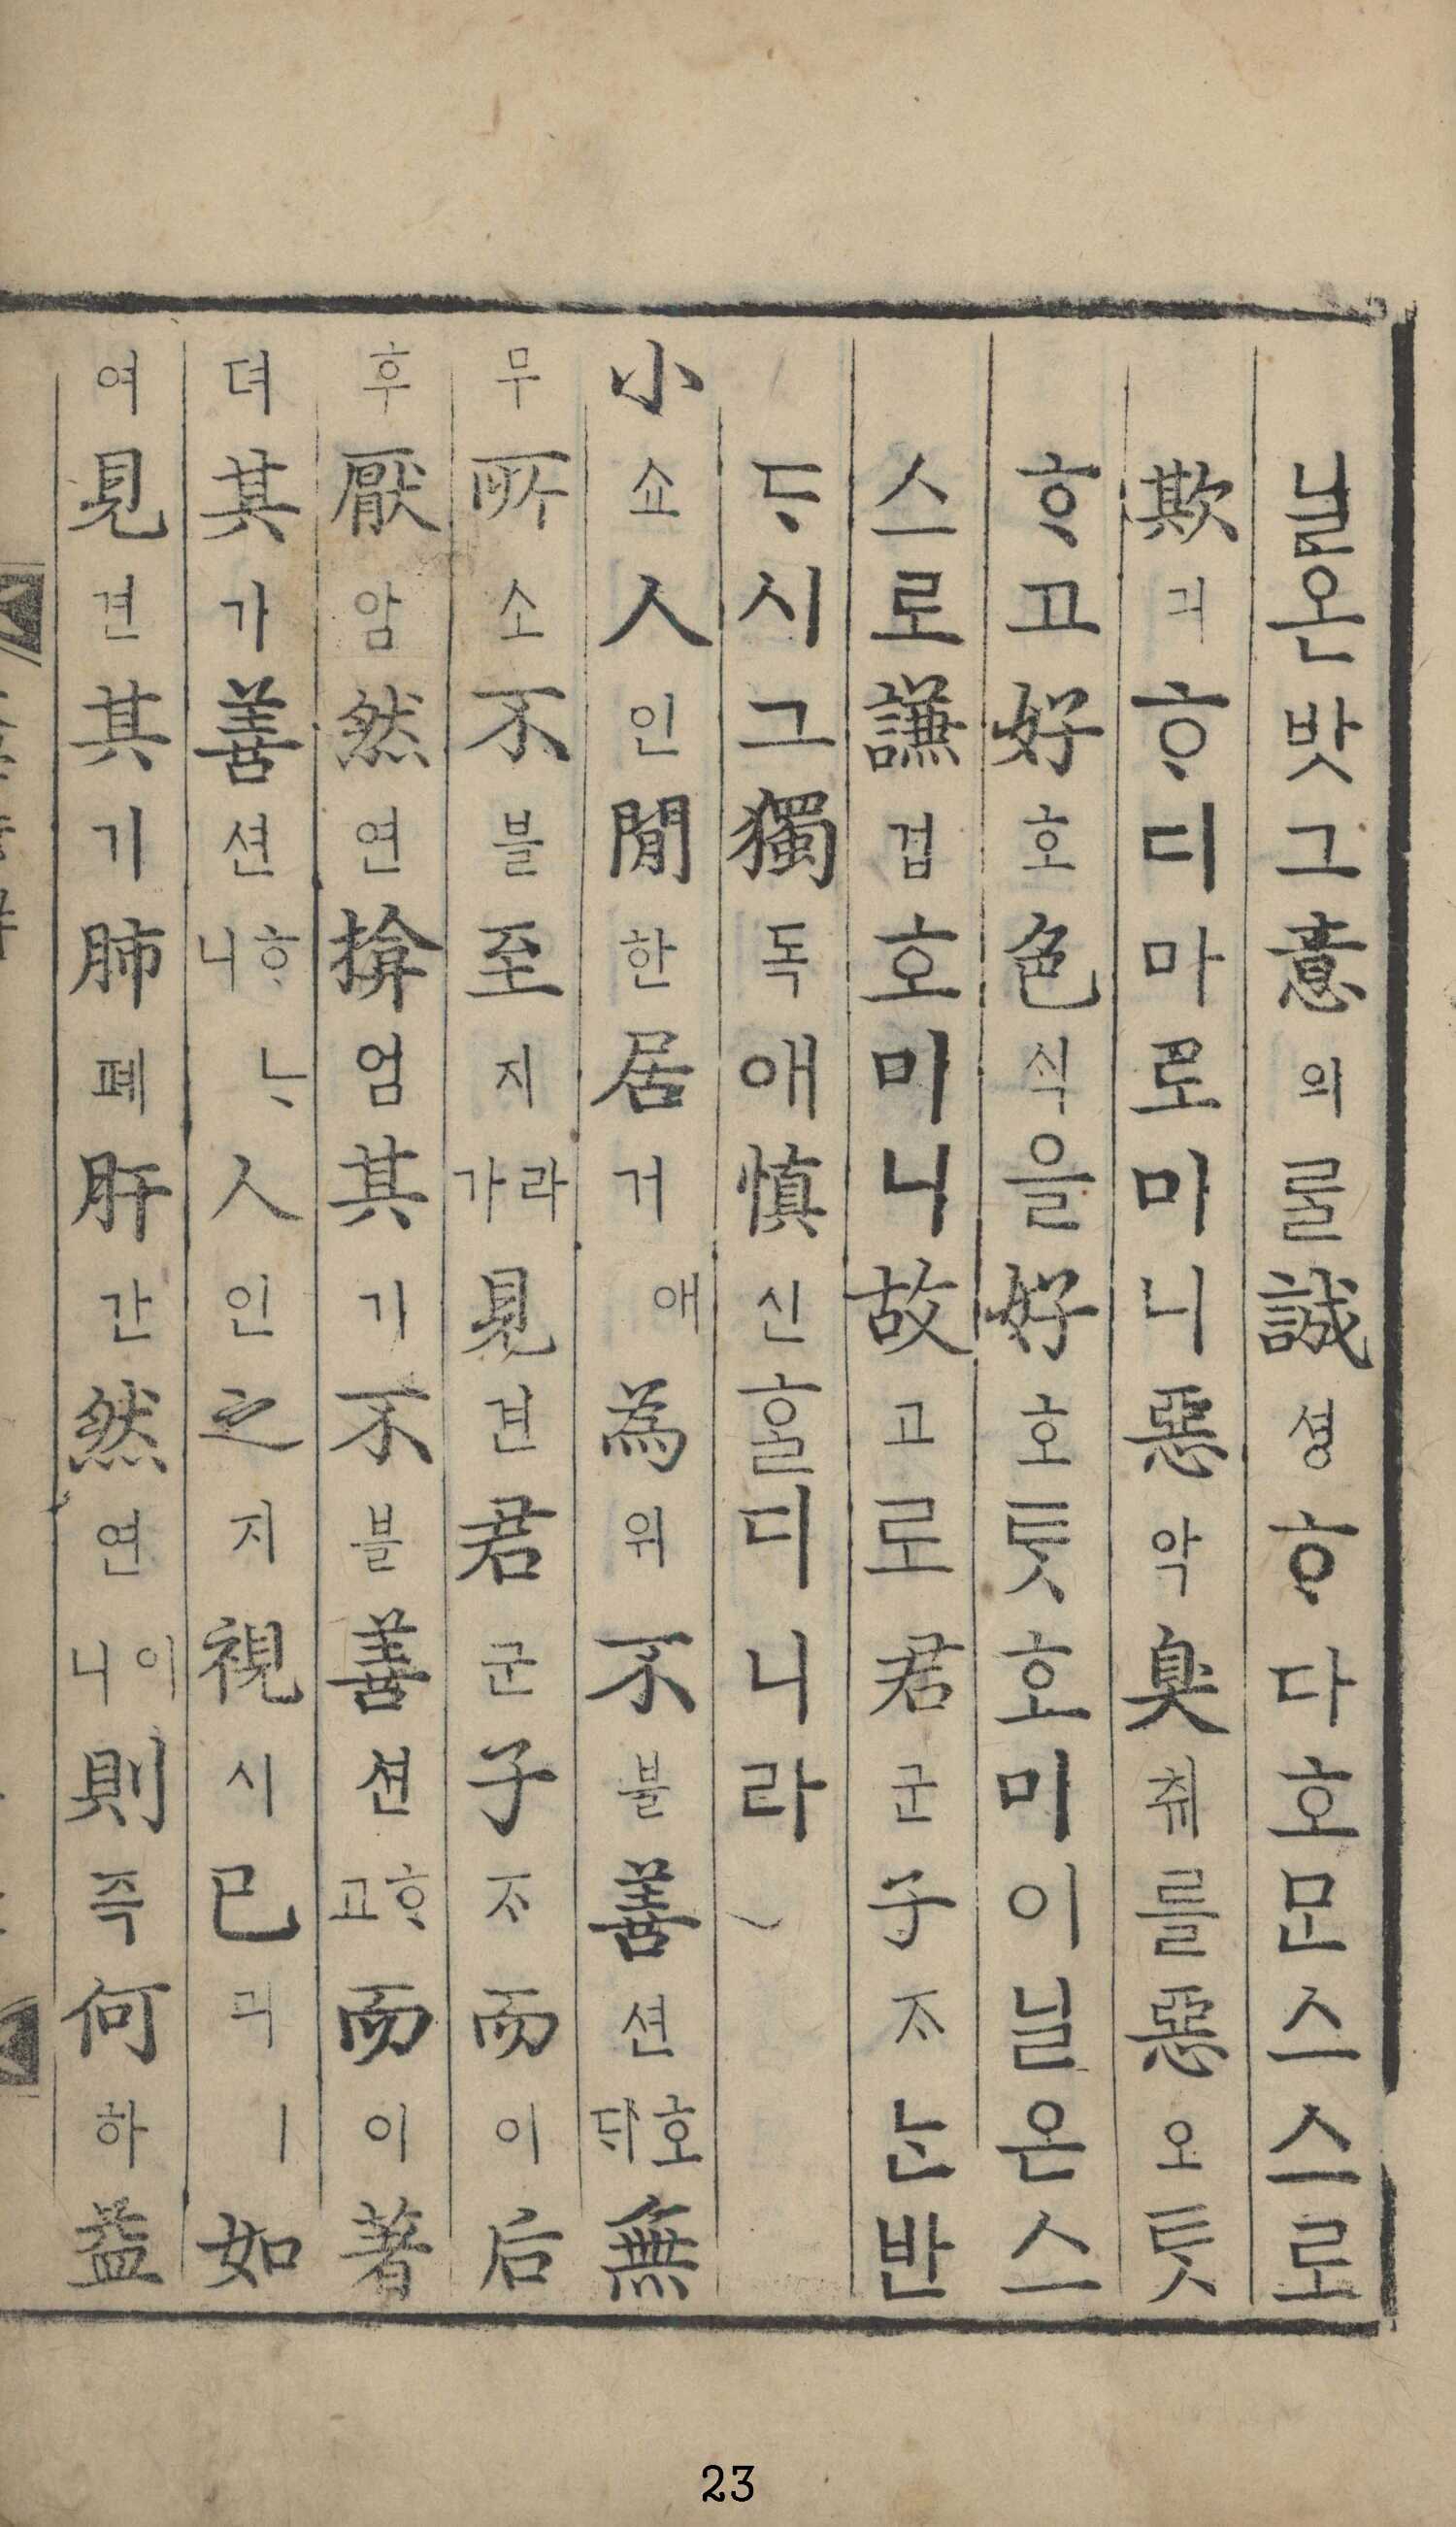 닐온밧그意의ᄅᆞᆯ誠셩ᄒᆞ다호ᄆᆞᆫ스스로
欺긔ᄒᆞ디마로미니惡악臭취를惡오ᄐᆞᆺ
ᄒᆞ고好호色ᄉᆡᆨ을好호ᄐᆞᆺ호미이닐온스
스로謙겸호미니故고로君군子ᄌᆞᄂᆞᆫ반
ᄃᆞ시그獨독애愼신홀디니라
小쇼人인閒한居거애為위不블善션호ᄃᆡ無
무所소不블至지라가見견君군子ᄌᆞ而이后
후厭암然연揜엄其기不블善션ᄒᆞ고而이著
뎌其기善션ᄒᆞᄂᆞ니人인之지視시己긔ㅣ如
여見견其기肺폐肝간然연이니則즉何하益
23